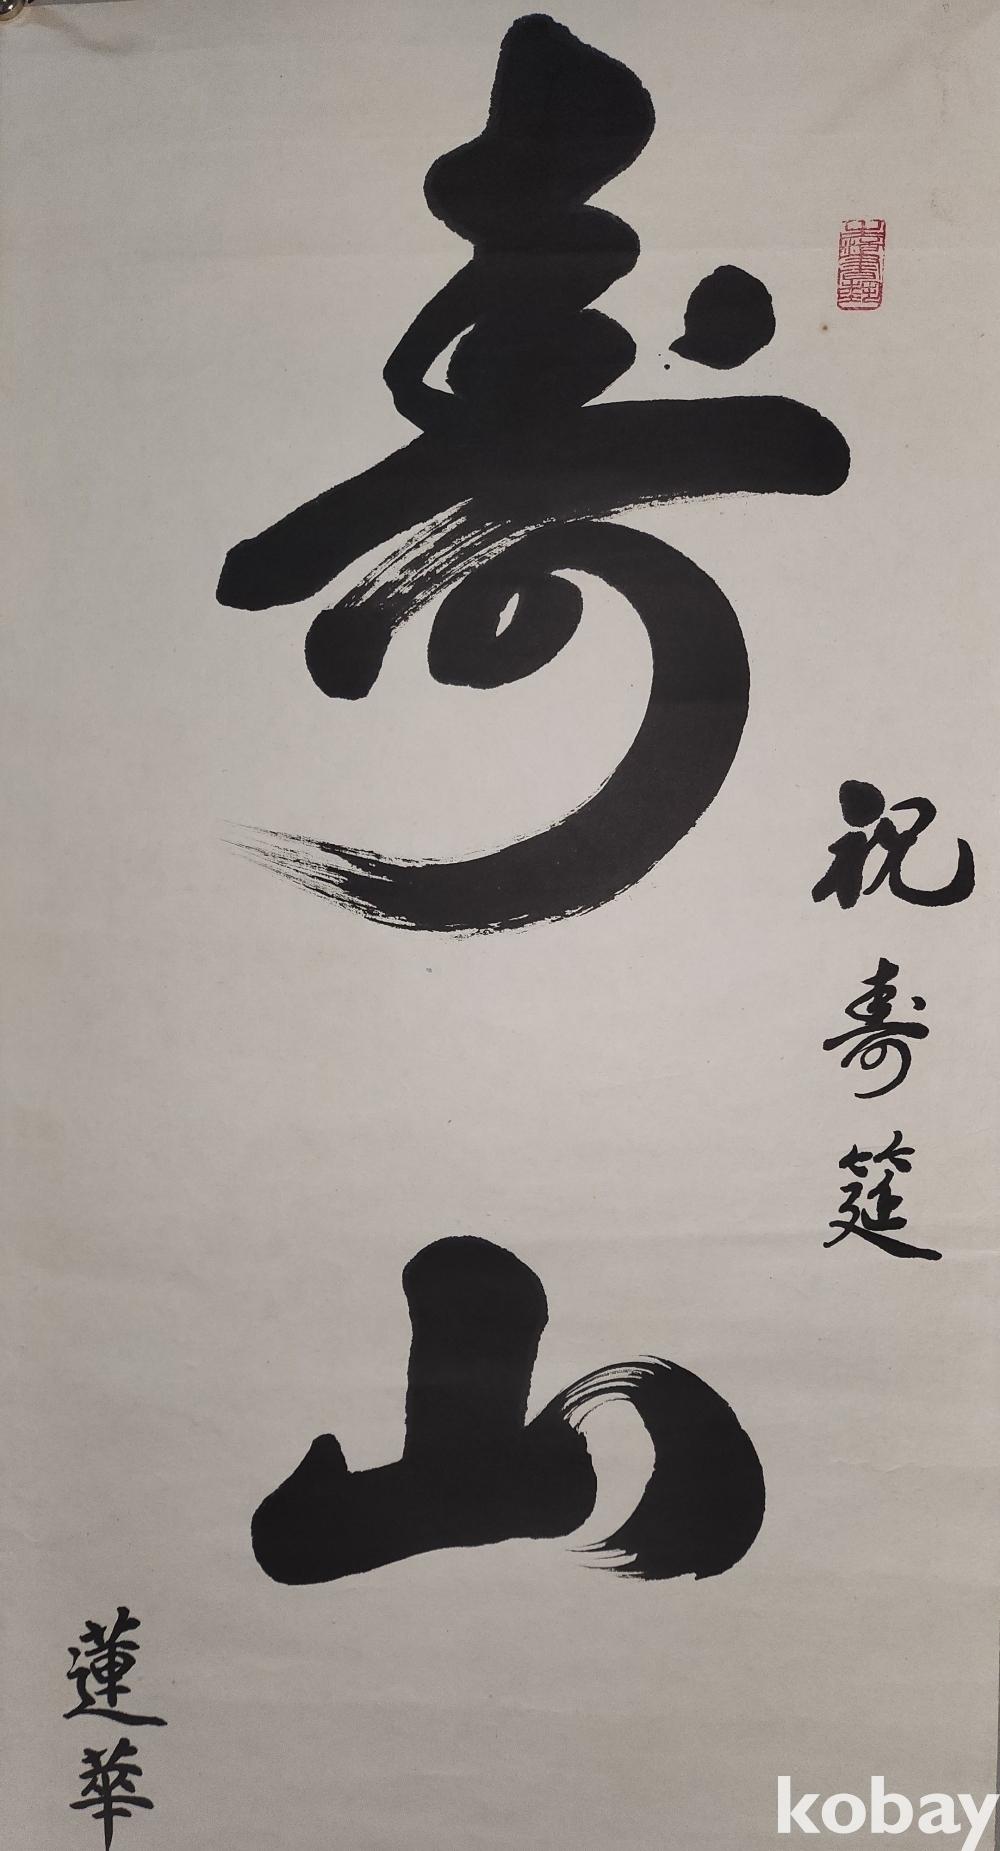 寿山
祝寿筵
蓮華
kobay